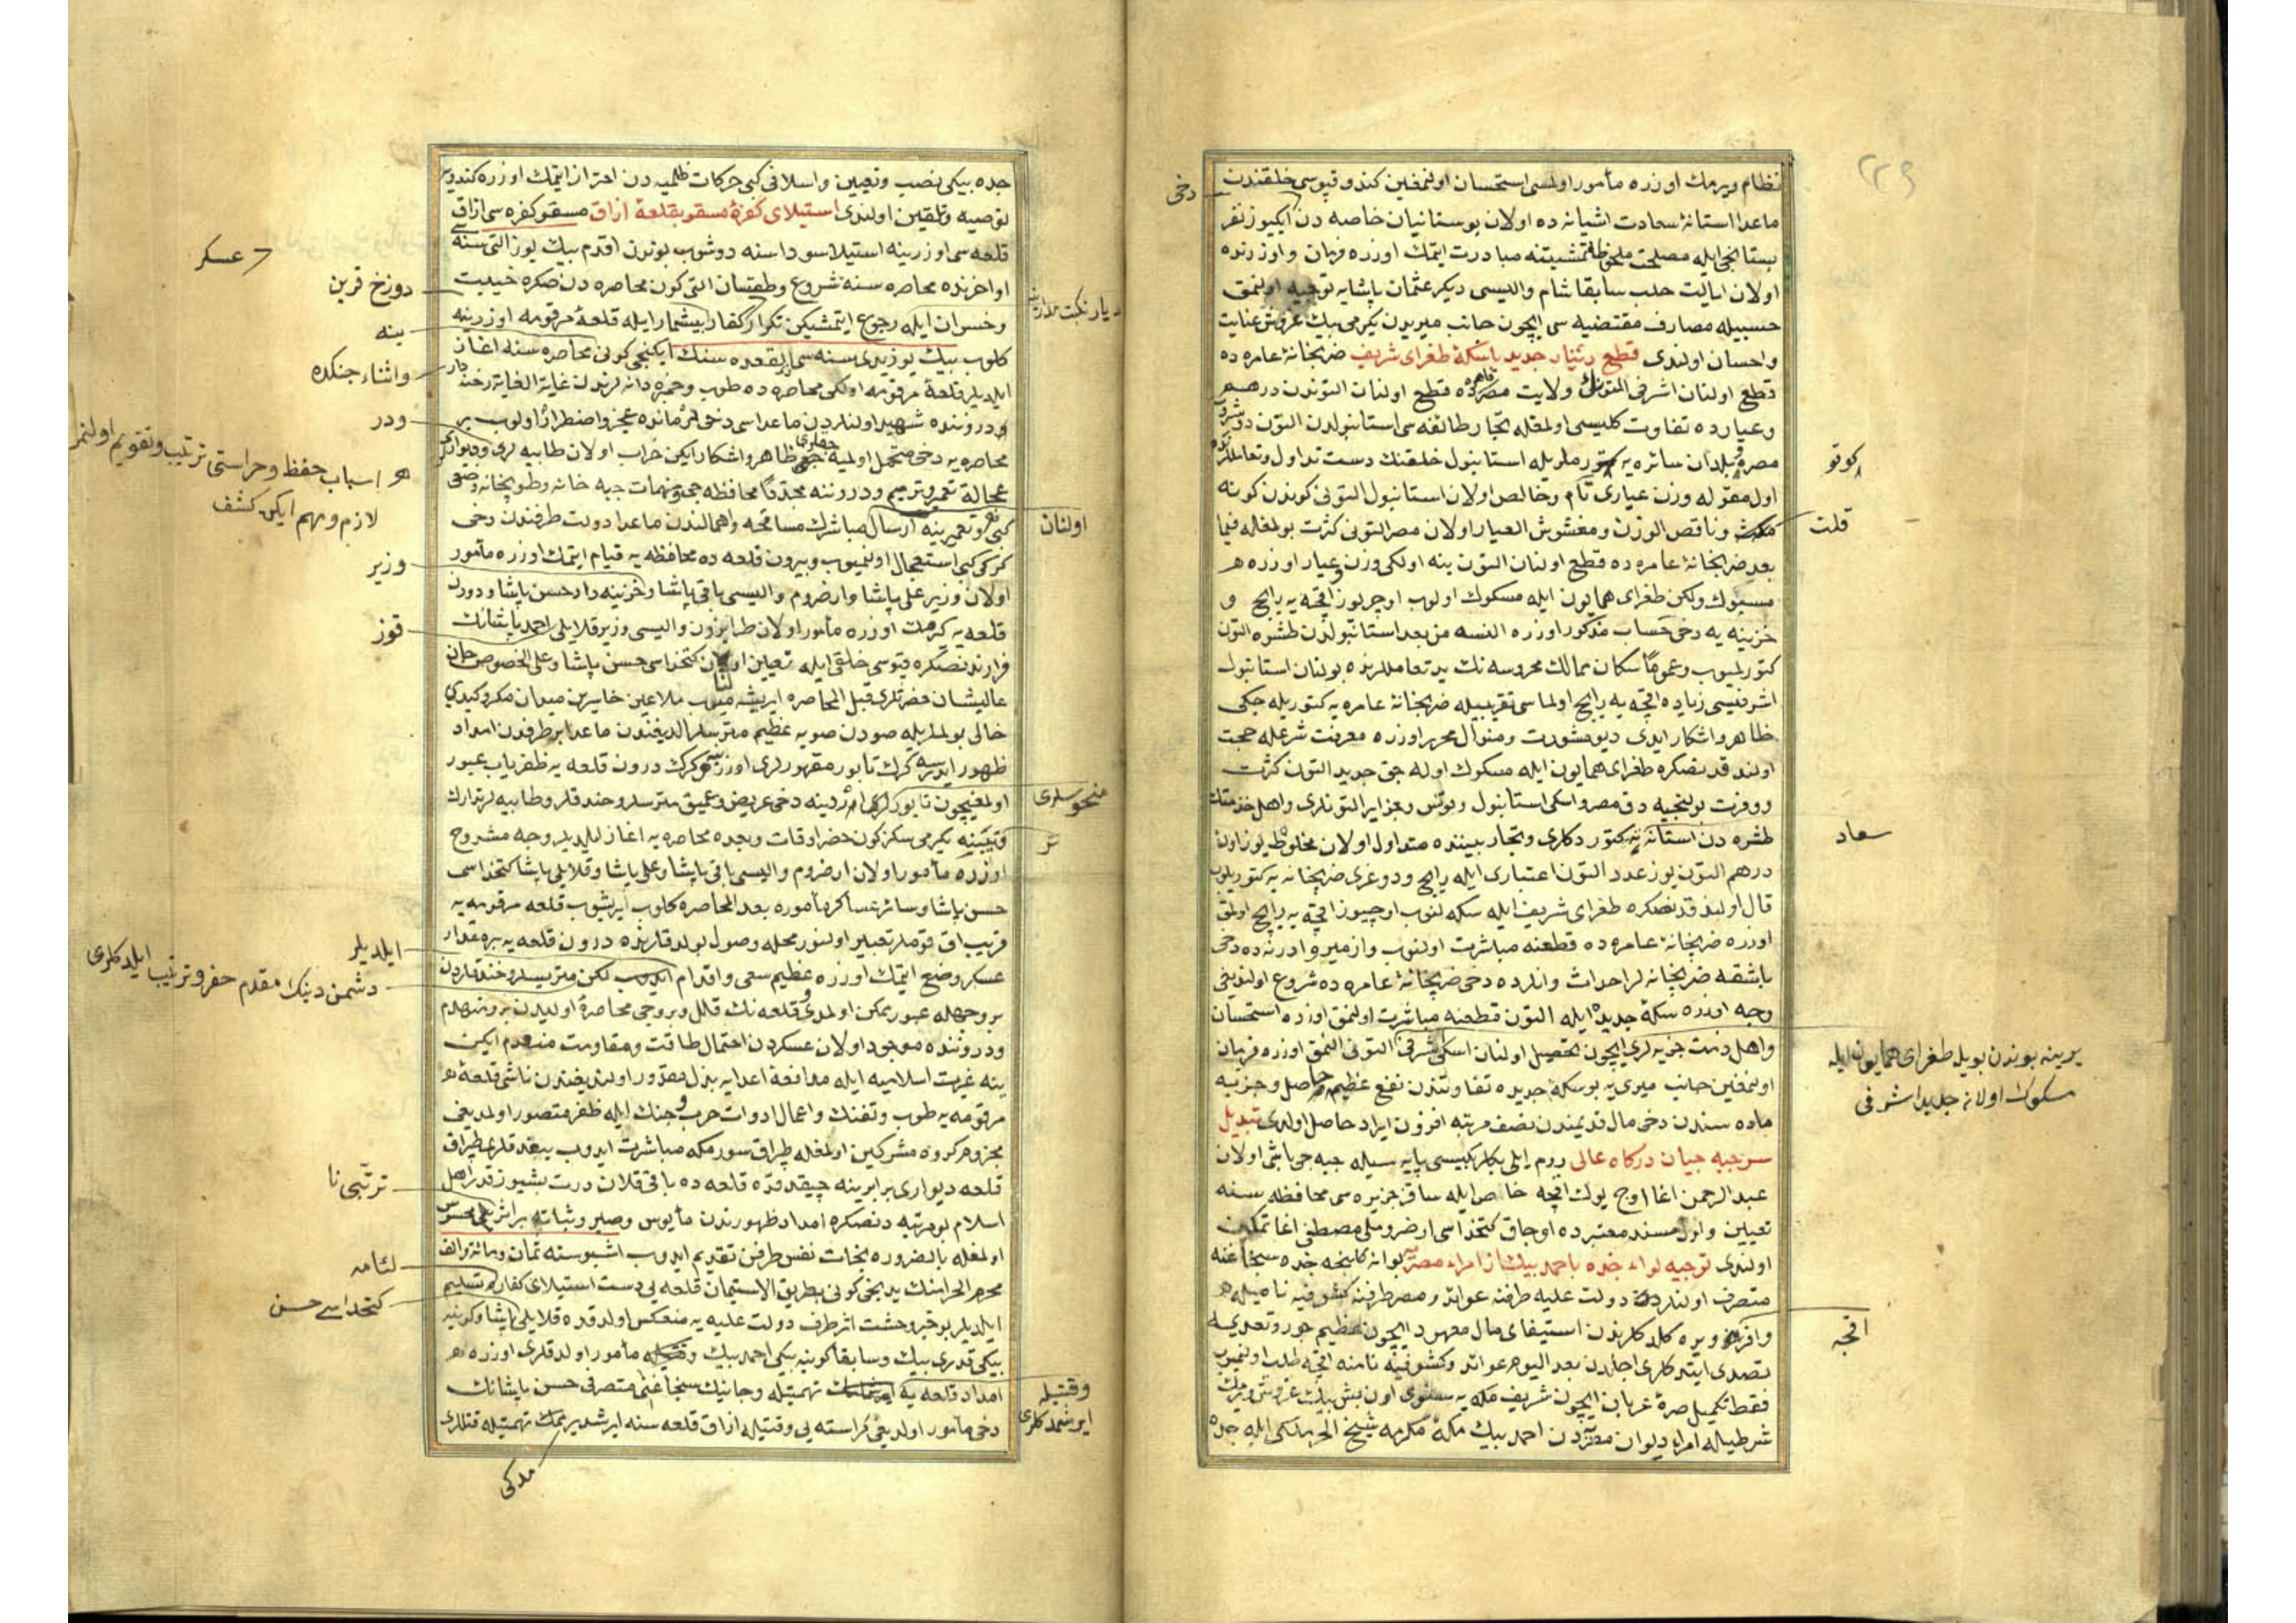 ٢٢٩
نظام ويرمك اوزره مأمور اولمسى استحسان اولنمغين كندو قپوسى خلقندن
دخى
ماعدا استانۀ سعادت اشيانه ده اولان بوستانيان خاصه دن ايكيوز نفر
بستانجى ايله مصلحت ملحوظه تمشيتنه مبادرت ايتمك اوزره فرمان و اوزرنده
اولان ايالت حلب سابقا شام واليسى ديكر عثمان پاشايه توجيه اولنمق
حسبيله مصارف مقتضيه سى ايچون جانب ميريدن يكرمى بيك غروش عنايت
واحسان اولندى قطع دينار جديد باسكۀ طغراى شريف ضربخانۀ عامره ده
قطع اولنان اشرفى التونك ولايت مصر قاهره ده قطع اولنان التوندن درهم
وعيارده تفاوت كليسى اولمغله تجار طائفه سى استانبولدن التون
مصره و بلدان سائره يه كوتورملريله استانبول خلقنك دست تداول وتعامللرنده
كوتو
اول مقوله وزن عيارى تام وخالص اولان استانبول التونى كوندن كونه
قلت
وناقص الوزن ومغشوش العيار اولان مصر التونى كثرت بولمغله فيما
بعد ضربخانۀ عامره ده قطع اولنان التون ينه اولكى وزن وعيار اوزره
مسبوك ولكن طغراى همايون ايله مسكوك اولوب اوچر يوز اقچه يه رايج و
خزينه يه دخى حساب مذكور اوزره النسه من بعد استانبولدن طشره التون
كتورلميوب وعموما سكان ممالك محروسه نك يد تعامللرنده بولنان استانبول
اشرفيسى زياده اقچه يه رايج اولماسى تقريبيله ضربخانۀ عامره يه كتوريله جكى
ظاهر واشكار ايدى ديو مشورت ومنوال محرر اوزره معرفت شرعله حجت
اولندقدنصكره طغراى همايون ايله مسكوك اوله جق جديد التون كثرت
ووفرت بولنجيه دق مصر واسكى استانبول وتونس وجزاير التونلرى واهل خدمتك
طشره دن استانه يه كتوردكلرى وتجار بيننده متداول اولان مخلوط يوز اون
سعاد
درهم التون يوز عدد التون اعتبارى ايله رايج ودوغرى ضربخانه يه كتوريلوب
قال اولندقدنصكره طغراى شريف ايله سكه لنوب اوچيوز اقچه يه رايج اولمق
اوزره ضربخانۀ عامره ده قطعنه مباشرت اولنوب وازمير وادرنه ده دخى
باشقه ضربخانه لر احداث وانلرده دخى ضربخانۀ عامره ده شروع اولنديغى
وجه اوزره سكۀ جديده ايله التون قطعنه مباشرت اولنمق اوزره استحسان
واهل ذمت جزيه لرى ايچون تحصيل اولنان اسكى شرفى التونى النمق اوزره فرمان
يرينه بوندن بويله طغراى همايون ايله
مسكوك اولان جديد اشرفى
اولنمغين جانب ميرى يه بو سكۀ جديده تفاوتندن نفع عظيم حاصل وجزيه
ماده سندن دخى مال قديمندن نصف مرتبه افزون ايراد حاصل اولدى تبديل
سرجبه جيان دركاه عالى روم ايلى بكلربكيسى پايه سيله جبه جى باشى اولان
عبد الرحمن اغا اوچ يوك اقچه خاص ايله ساقز جزيره سى محافظه سنه
تعيين واول مسند معتبرده اوجاق كتخداسى ارضروملى مصطفى اغا تمكين
اولندى توجيه لواء جده باحمد بيك از امراء مصر بو انه كلنجه جده سنجاغنه
متصرف اولنلردن دولت عليه طرفنه عوائد ومصر طرفنه كشوفيه ناميله
وافر ويره كلدكلرندن استيفاى مال معهود ايچون عظيم جور وتعدى يه
اقچه
تصدى ايتدكلرى اجلدن بعد اليوم عوائد وكشوفيه نامنه اقچه طلب اولنميوب
فقط تكميل صرۀ عربان ايچون شريف مكه يه سنوى اون بش بيك غروش ويرمك
شرطيله امراء ديوان مصردن احمد بيك مكۀ مكرمه شيخ الحرملكى ايله جده
جده بيكى نصب وتعيين واسلافى كبى حركات ظلميه دن احتراز ايتمك اوزره كندويه
توصيه وتلقين اولندى استيلاى كفرۀ مسقو بقلعۀ ازاق مسقو كفره سى ازاق
قلعه سى اوزرينه استيلا سوداسنه دوشوب بوندن اقدم بيك يوز التى سنه سى
عسكر
اواخرنده محاصره سنه شروع وطقسان التى كون محاصره دن صكره خيبت
دوزخ قرين
وخسران ايله رجوع ايتمشيكن تكرار كفار بيشمار ايله قلعۀ مرقومه اوزرينه
ينه
كلوب بيك يوز يدى سنه سى ذيقعده سنك ايكنجى كونى محاصره سنه اغاز
ايلديلر قلعۀ مرقومه اولكى محاصره ده طوب وخمبره دانه لرندن غاية الغايه رخنه دار
واثناء جنكده
ودروننده شهيد اولنلردن ماعداسى دخى عجز واضطرار اولوب بر
ودر
محاصره يه دخى متحمل اولميه جقلرى ظاهر واشكار ايكن خراب اولان طابيه لرى وديوارلرى
عجالة تعمير وترميم ودروننه مجددا محافظه جى ومهمات جبه خانه وطوپخانه وضعى
اسباب حفظ وحراستى ترتيب وتقويم اولنمز
لازم ومهم ايكن كشف
كبى وتعميرينه ارسال اولنان مباشرك مسامحه واهمالندن ماعدا دولت طرفندن دخى
كركى كبى استعجال اولنميوب وبيرون قلعه ده محافظه يه قيام ايتمك اوزره مأمور
وزير
اولان وزير على پاشا وارضروم واليسى باقى پاشا وخزينه دار حسن پاشا ودرون
قلعه يه كرمك اوزره مأمور اولان طرابزون واليسى وزير قلايلى احمد پاشانك
قوز
فرارندنصكره قپوسى خلقى ايله تعيين اولنان كتخداسى حسن پاشا وعلى الخصوص خان
عاليشان حضرتلرى قبل المحاصره ايريشه ميوب ملاعين خاسرين ميدان مكر وكيدى
خالى بولملريله صودن صويه عظيم متريسلر الديغندن ماعدا بر طرفدن امداد
ظهور ايدرسه كرك تابور مقهورلرى اوزرينه كرك درون قلعه يه ظفرياب عبور
اولمغيچون تابور اوزرينه دخى عريض وعميق متريسلر وخندقلر وطابيه لر تدارك
منحوسلرى
يكرمى سكز كون حفر اوقات وبعده محاصره يه اغاز ايلديلر وجه مشروح
اوزره مأمور اولان ارضروم واليسى باقى پاشا وعلى پاشا وقلايلى پاشا كتخداسى
حسن پاشا وسائر عساكر مأموره بعد المحاصره كلوب ايريشوب قلعه مرقومه يه
قريب اق قوملر تعبير اولنور محله وصول بولدقلرنده درون قلعه يه بر مقدار
عسكر وضع ايتمك اوزره عظيم سعى واقدام ايلديلر لكن متريسلر وخندقلردن
ايلديلر
دشمن دينك مقدم حفر وترتيب ايلدكلرى
بر وجهله عبور ممكن اولمدى وقلعه نك قلل وبروجى محاصرۀ اوليدن برو منهدم
ودروننده موجود اولان عسكردن احتمال طاقت ومقاومت منعدم ايكن
ينه غيرت اسلاميه ايله مدافعۀ اعدايه بذل مقدور اولنديغندن ناشى قلعۀ
مرقومه يه طوب وتفنك واعمال ادوات حرب وجنك ايله ظفر متصور اولمديغى
مجزوم كروه مشركين اولمغله طپراق سورمكه مباشرت ايدوب طپراق
قلعه ديوارى برابرينه چيقدقده قلعه ده باقى قلان درت بشيوز قدر اهل
ترتبجى نا
اسلام بو مرتبه دنصكره امداد ظهورندن مأيوس وصبر وثباته بر اثر
اولمغله بالضروره نجات نفس طرفن تقديم ايدوب اشبو سنه ثمان ومائة والف
لئامه
محرم الحرامنك يدنجى كونى بطريق الاستيمان قلعه يى دست استيلاى كفاره تسليم
ايلديلر بو خبر وحشت اثر طرف دولت عليه يه منعكس اولدقده قلايلى پاشا وكوينه
كتخداسى حسن
بيكى قدرى بيك وسابقا كوينه بيكى احمد بيك مأمور اولدقلرى اوزره
امداد قلعه يه تهمتيله وجانيك سنجاغى متصرفى حسن پاشانك
وقتيله
ايرشمدكلرى
دخى مأمور اولديغى كراسته يى وقتيله ازاق قلعه سنه ايرشديرمامك تهمتيله قتللرى